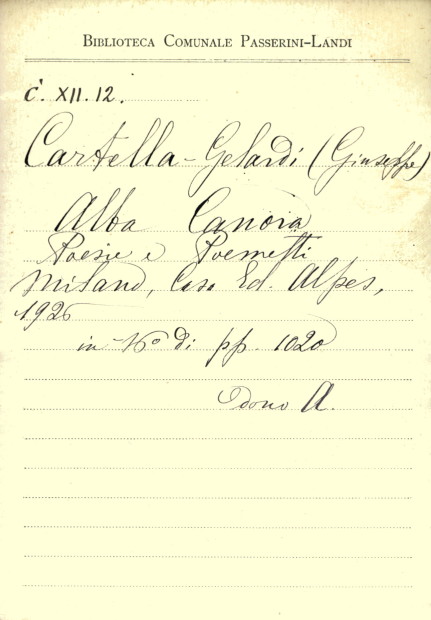 BIBLIOTECA COMUNALE PASSERINI-LANDI
C. XII. 12.
Cartella-Gelardi (Giuseppe)
Alba Canora
Poesie e Poemetti
Milano, Casa Ed. Alpes,
1926
in 16° di pp. 1020
Dono A.